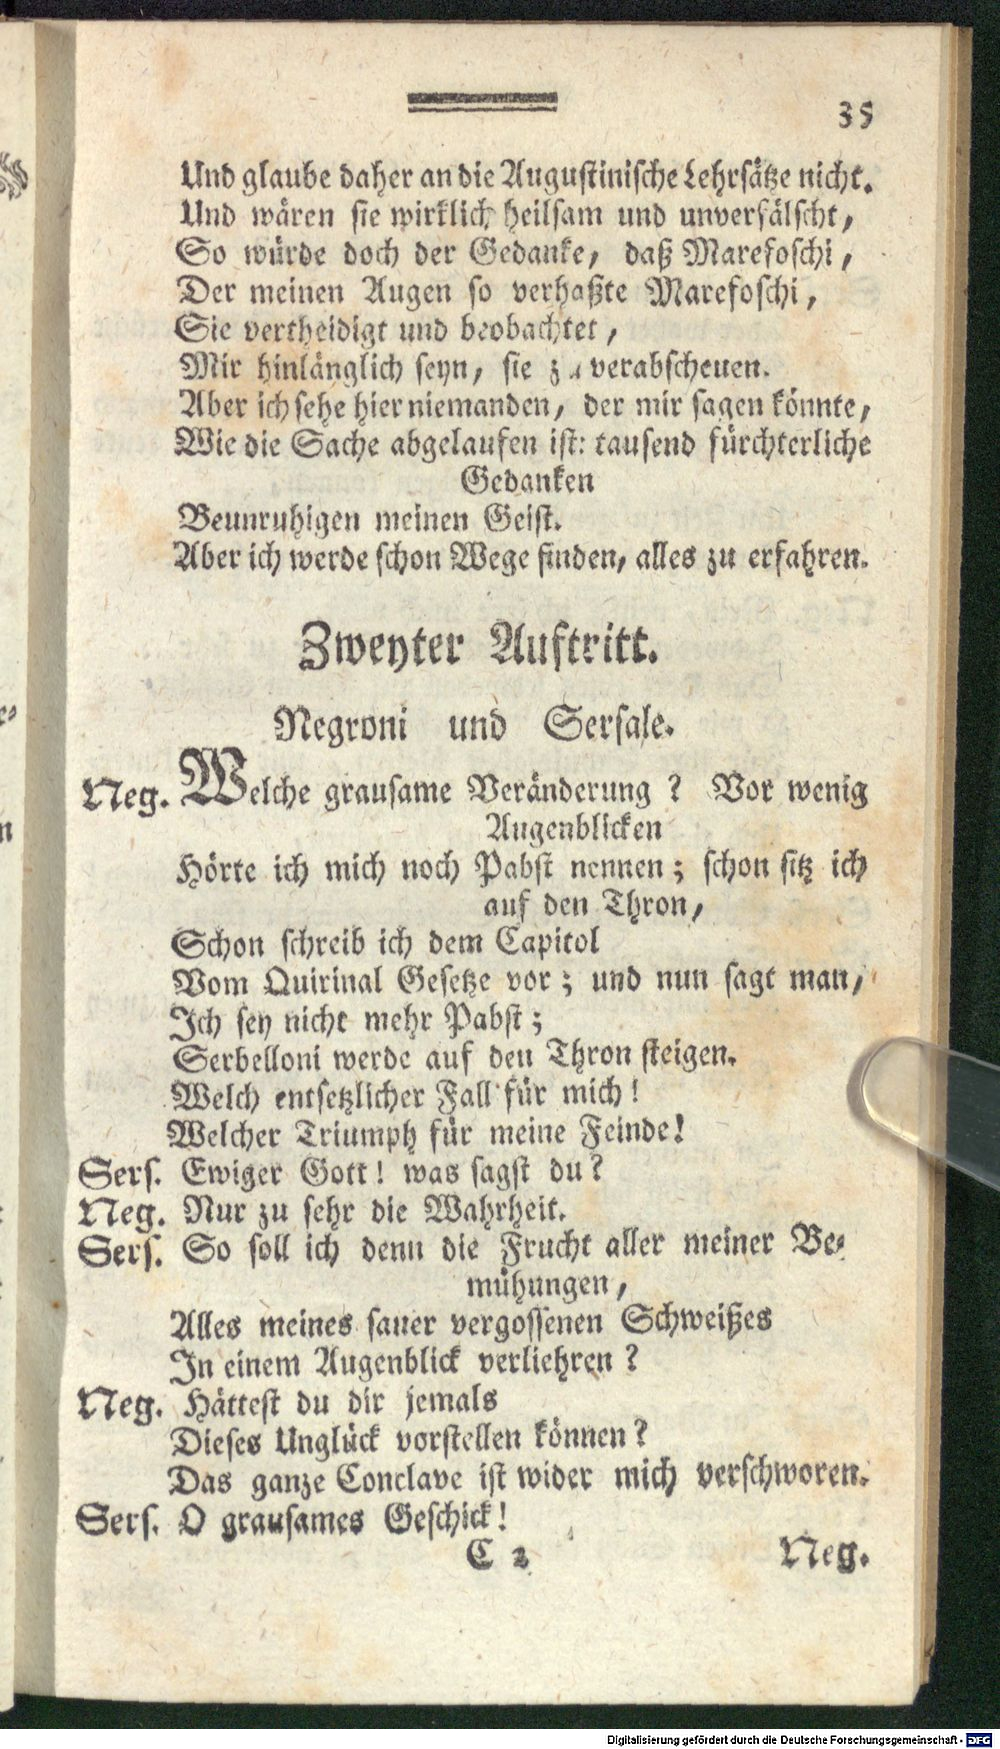 35
Und glaube daher an die Augustinische Lehrsätze nicht.
Und wären sie wirklich heilsam und unverfälscht,
So würde doch der Gedanke, daß Marefoschi,
Der meinen Augen so verhaßte Marefoschi,
Sie vertheidigt und beobachtet,
Mir hinlänglich seyn, sie zu verabscheuen.
Aber ich sehe hier niemanden, der mir sagen könnte,
Wie die Sache abgelaufen ist: tausend fürchterliche
Gedanken
Beunruhigen meinen Geist.
Aber ich werde schon Wege finden, alles zu erfahren.
Zweyter Auftritt.
Negroni und Sersale.
Neg. Welche grausame Veränderung? Vor wenig
Augenblicken
Hörte ich mich noch Pabst nennen; schon sitz ich
auf den Thron,
Schon schreib ich dem Capitol
Vom Quirinal Gesetze vor; und nun sagt man,
Ich sey nicht mehr Pabst;
Serbelloni werde auf den Thron steigen.
Welch entsetzlicher Fall für mich!
Welcher Triumph für meine Feinde!
Sers. Ewiger Gott! was sagst du?
Neg. Nur zu sehr die Wahrheit.
Sers. So soll ich denn die Frucht aller meiner Be-
mühungen,
Alles meines sauer vergossenen Schweißes
In einem Augenblick verliehren?
Neg. Hättest du dir jemals
Dieses Unglück vorstellen können?
Das ganze Conclave ist wider mich verschworen.
Sers. O grausames Geschick!
C 2 Neg.
Digitalisierung gefördert durch die Deutsche Forschungsgemeinschaft - DFG